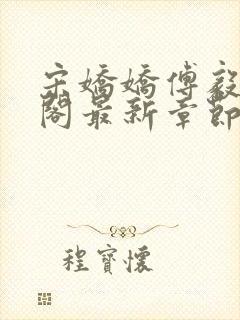 宋嬌嬌傅毅
閣最新章節
程寶懷